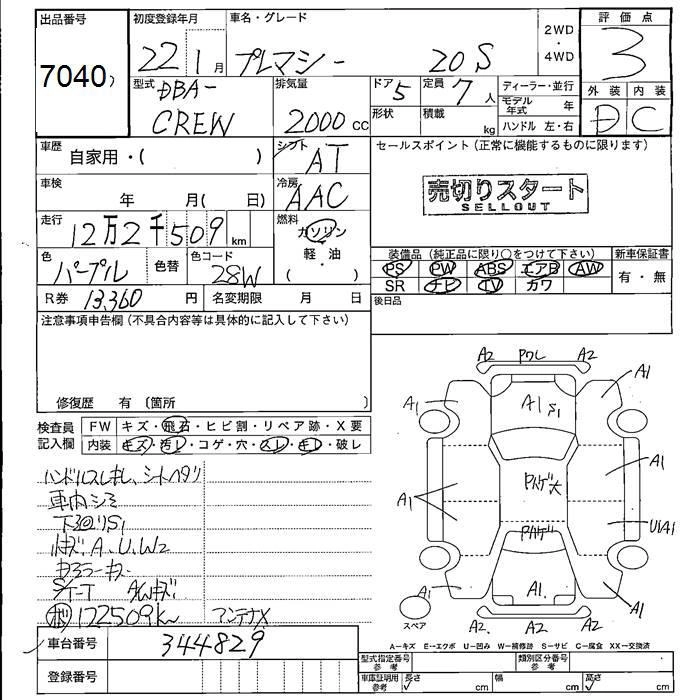 出品番号 初度登録年月 車名・グレード 2WD ・ 4WD 評価点
7040 22 1月 プレマシー 20S 3
型式 DBA- 排気量 ドア 5 定員 7人 ディーラー・並行 外装 内装
CREW 2000cc 形状 積載 kg モデル年式 年 D C
ハンドル 左・右
車歴 自家用・( ) シフト AT セールスポイント(正常に機能するものに限ります)
車検 年 月( 日) 冷房 AAC 売切りスタート
SELLOUT
走行 12万2千509km 燃料 ガソリン・軽・油( )
装備品(純正品に限り○をつけて下さい) 新車保証書
色 パープル 色替 色コード 28W PS PW ABS エアB AW 有・無
SR ナビ TV カワ
R券 13,360円 名変期限 月 日 後日品
注意事項申告欄(不具合内容等は具体的に記入して下さい)
修復歴 有 〔箇所 〕
検査員記入欄 FW キズ・飛石・ヒビ割・リペア跡・X要
内装 キズ・汚レ・コゲ・穴・スレ・キレ・破レ
車内シミ
下廻りS1
A、U、W2
122509km アンテナX
A2 PワレA2
A1 A1 S1 A1
A1 A1
U1A1
A1 A1. A1
スペア A2. A2 A2
車台番号 344829
A−キズ E−エクボ U−凹み W−補修跡 S−サビ C−腐食 XX−交換済
登録番号 型式指定番号 参考 類別区分番号 参考
車庫証明用 参考 長さ cm 幅 cm 高さ cm